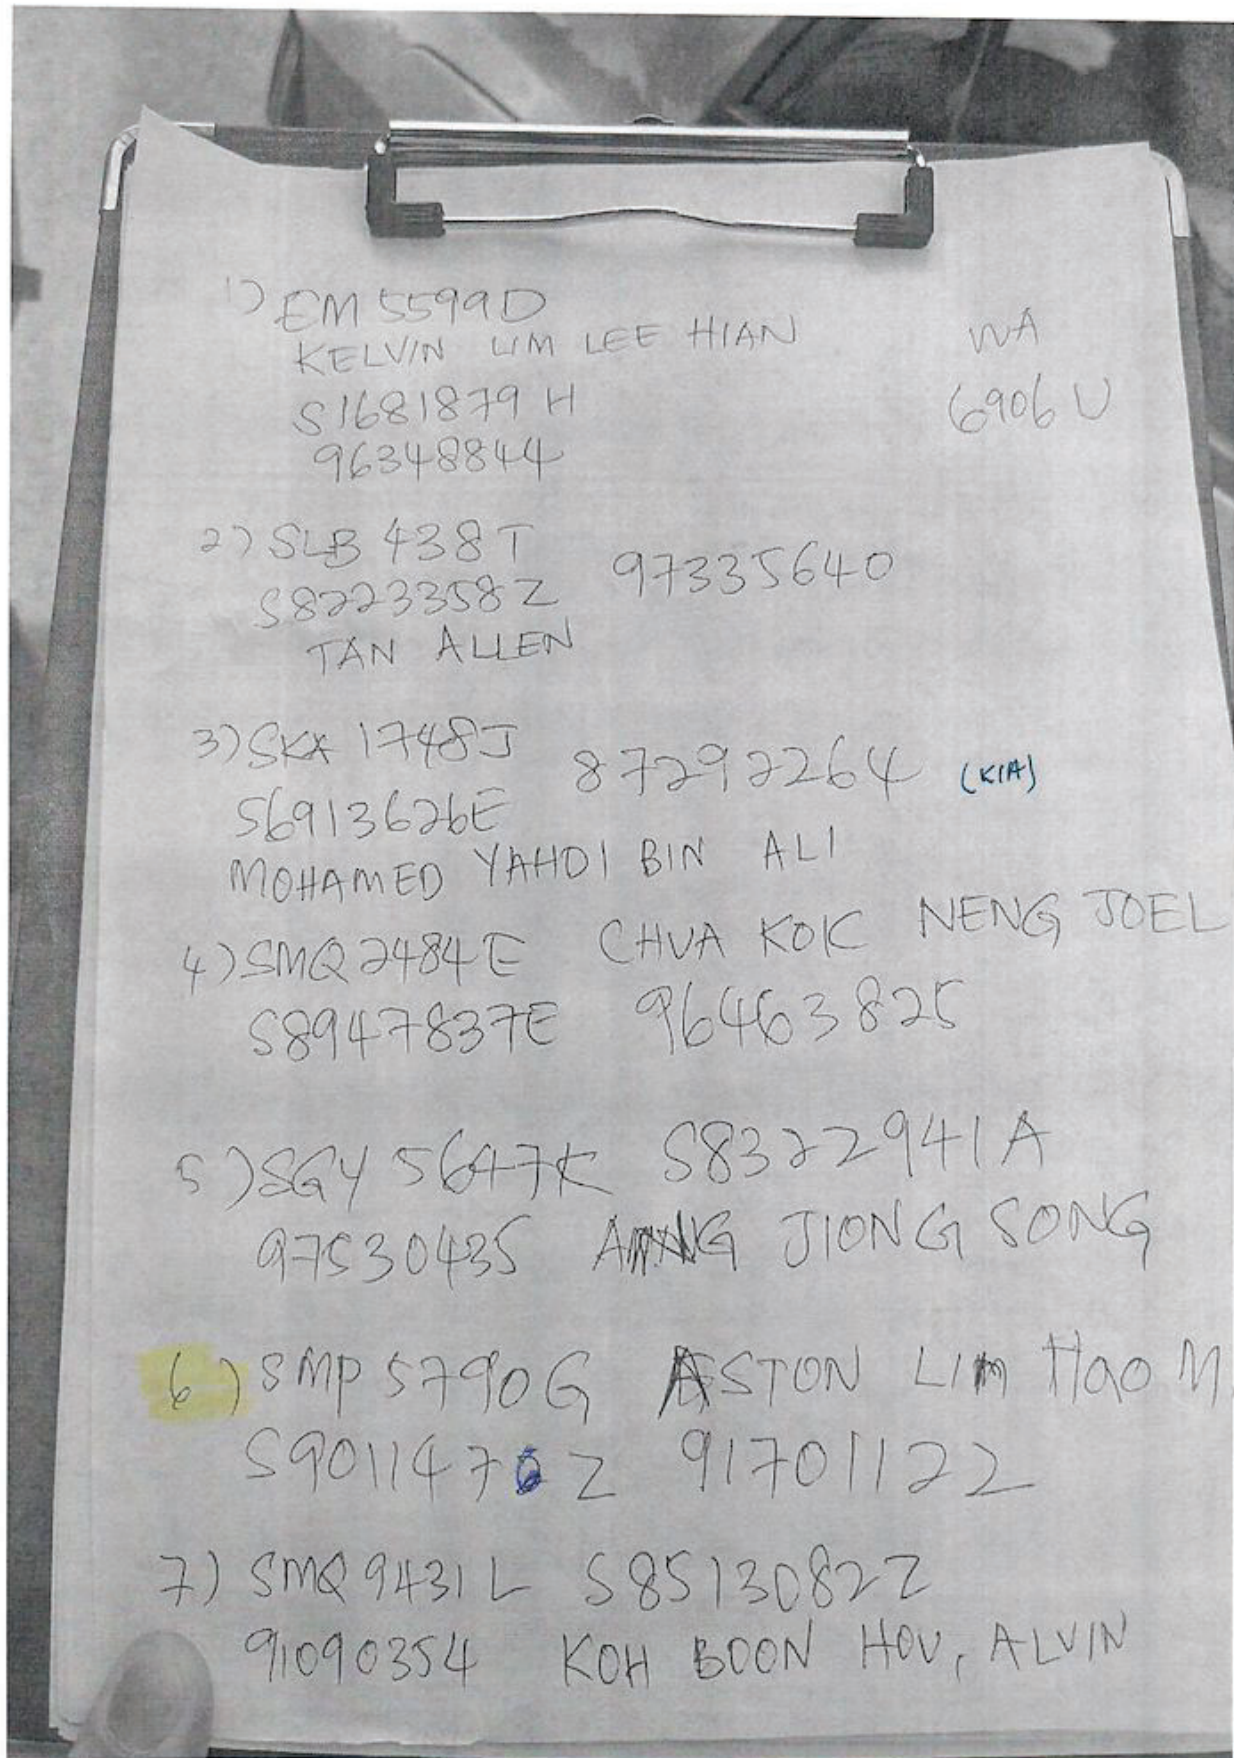 1) EM 5599D
KELVIN LIM LEE HIAN WA
S1681879H 6906U
96348844
2) SLB 438T 97335640
S8223358Z
TAN ALLEN
3) SKA 1748J 87292264 (KIA)
S6913626E
MOHAMED YAHDI BIN ALI
4) SMQ2484E CHUA KOK NENG JOEL
S8947837E 96463825
5) SGY 5647K S8322941A
97530435 ANG JIONG SONG
6) SMP5790G ASTON LIM HAO M
S9011476Z 91701122
7) SMQ9431L S8513082Z
91090354 KOH BOON HOU, ALVIN